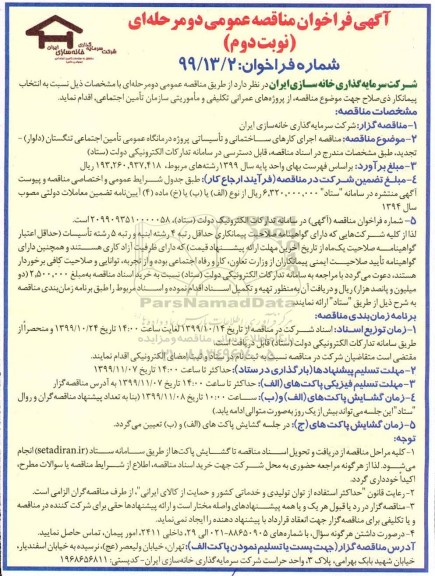 آگهی فراخوان مناقصه عمومی دو مرحله‌ای
(نوبت دوم)
شماره فراخوان: ۹۹/۱۳/۲
شرکت سرمایه گذاری خانه سازی ایران
شرکت سرمایه‌گذاری خانه سازی ایران در نظر دارد از طریق مناقصه عمومی دو مرحله‌ای با مشخصات ذیل نسبت به انتخاب
پیمانکار ذی‌صلاح جهت موضوع مناقصه، از پروژه‌های عمرانی تکلیفی و مأموریتی سازمان تأمین اجتماعی، اقدام نماید.
مشخصات مناقصه:
۱- مناقصه گزار: شرکت سرمایه‌گذاری خانه‌سازی ایران
۲- موضوع مناقصه: مناقصه اجرای کارهای ساختمانی و تأسیساتی پروژه درمانگاه عمومی تأمین اجتماعی تنگستان (دلوار) -
تجدید، طبق مشخصات مندرج در اسناد مناقصه، قابل دسترسی در سامانه تدارکات الکترونیکی دولت (ستاد)
۳- مبلغ برآورد: براساس فهرست بهای واحد پایه سال ۱۳۹۹ رشته‌های مربوط، ۱۹۳,۲۶۰,۹۳۷,۴۱۸ ریال
۴- مبلغ تضمین شرکت در مناقصه (فرآیند ارجاع کار): طبق جدول شرایط عمومی و اختصاصی مناقصه و پیوست
آگهی منتشره در سامانه "ستاد" ۶,۳۲۰,۰۰۰,۰۰۰ ریال از نوع (الف) یا (ب) یا (خ) ماده (۴) آیین‌نامه تضمین معاملات دولتی مصوب
سال ۱۳۹۴
۵- شماره فراخوان مناقصه (آگهی) در سامانه تدارکات الکترونیکی دولت (ستاد)، ۲۰۹۹۰۹۳۵۱۰۰۰۰۰۵۸ است.
لذا از کلیه شرکت‌هایی که دارای گواهینامه صلاحیت پیمانکاری حداقل رتبه ۴ رشته ابنیه و رتبه ۵ رشته تأسیسات (حداقل اعتبار
گواهینامه صلاحیت یک‌ماه از تاریخ آخرین مهلت ارائه پیشنهاد قیمت) که دارای ظرفیت آزاد کاری هستند و همچنین دارای
گواهینامه تأیید صلاحیت ایمنی پیمانکاران از وزارت تعاون، کار و رفاه اجتماعی بوده و از تجربه، توانایی و صلاحیت کافی برخوردار
هستند، دعوت می‌گردد با مراجعه به سامانه تدارکات الکترونیکی دولت (ستاد) نسبت به خرید اسناد مناقصه به مبلغ ۲,۵۰۰,۰۰۰ (دو
میلیون و پانصد هزار) ریال و دریافت آن به‌منظور تهیه و تکمیل اسناد اقدام نموده و اسناد مربوط را طبق برنامه زمان‌بندی مناقصه
به شرح ذیل از طریق "ستاد" ارائه نمایند.
برنامه زمان‌بندی مناقصه:
۱- زمان توزیع اسناد: اسناد شرکت در مناقصه از تاریخ ۱۳۹۹/۱۰/۱۴ لغایت ساعت ۱۴:۰۰ تاریخ ۱۳۹۹/۱۰/۲۴ و منحصراً از
طریق سامانه تدارکات الکترونیکی دولت (ستاد) قابل دریافت است.
مقتضی است متقاضیان شرکت در مناقصه نسبت به ثبت‌نام در ستاد و قید امضای الکترونیکی اقدام نمایند.
۲- مهلت تسلیم پیشنهادها (بارگذاری در ستاد): حداکثر تا ساعت ۱۴:۰۰ تاریخ ۱۳۹۹/۱۱/۰۷
۳- مهلت تسلیم فیزیکی پاکت‌های (الف): حداکثر تا ساعت ۱۴:۰۰ تاریخ ۱۳۹۹/۱۱/۰۷ به آدرس مناقصه‌گزار
۴- زمان گشایش پاکت‌های (الف) و (ب): ساعت ۱۰:۰۰ تاریخ ۱۳۹۹/۱۱/۰۸ (بنا به تعداد پیشنهاد مناقصه‌گران و روال
"ستاد" این جلسه می‌تواند بیش از یک روز به‌صورت متوالی ادامه یابد.)
۵- زمان گشایش پاکت‌های (ج): در جلسه گشایش پاکت‌های (الف) و (ب) تعیین می‌گردد.
توجه:
۱- کلیه مراحل مناقصه از دریافت و تحویل اسناد مناقصه تا گشایش پاکت‌ها از طریق سامانه ستاد (setadiran.ir) انجام
می‌شود. لذا از هرگونه مراجعه حضوری به محل شرکت جهت خرید اسناد مناقصه، اطلاع از شرایط مناقصه یا سوالات مطرح،
اکیداً خودداری گردد.
۲- رعایت قانون "حداکثر استفاده از توان تولیدی و خدماتی کشور و حمایت از کالای ایرانی"، از طرف مناقصه‌گران الزامی است.
۳- مناقصه‌گزار در رد یا قبول هر یک و یا همه پیشنهادهای واصله مختار است و ارائه پیشنهادها حقی برای شرکت کننده در مناقصه
و یا تکلیفی برای مناقصه‌گزار جهت انعقاد قرارداد با پیشنهاد دهنده را ایجاد نمی‌نماید.
۴- درصورت داشتن هرگونه سوال، با شماره‌های ۸۸۶۵۰۹۰۵-۰۲۱ الی ۲۹، داخلی ۲۴۱۱، امور پیمان، تماس حاصل نمایید.
آدرس مناقصه گزار (جهت پست یا تسلیم نمودن پاکت الف): تهران، خیابان ولیعصر (عج)، نرسیده به خیابان اسفندیار،
خیابان شهید بابک بهرامی، پلاک ۳، واحد حراست شرکت سرمایه‌گذاری خانه‌سازی ایران - کدپستی: ۱۹۶۸۶۵۶۸۱۱
ParsNamadData